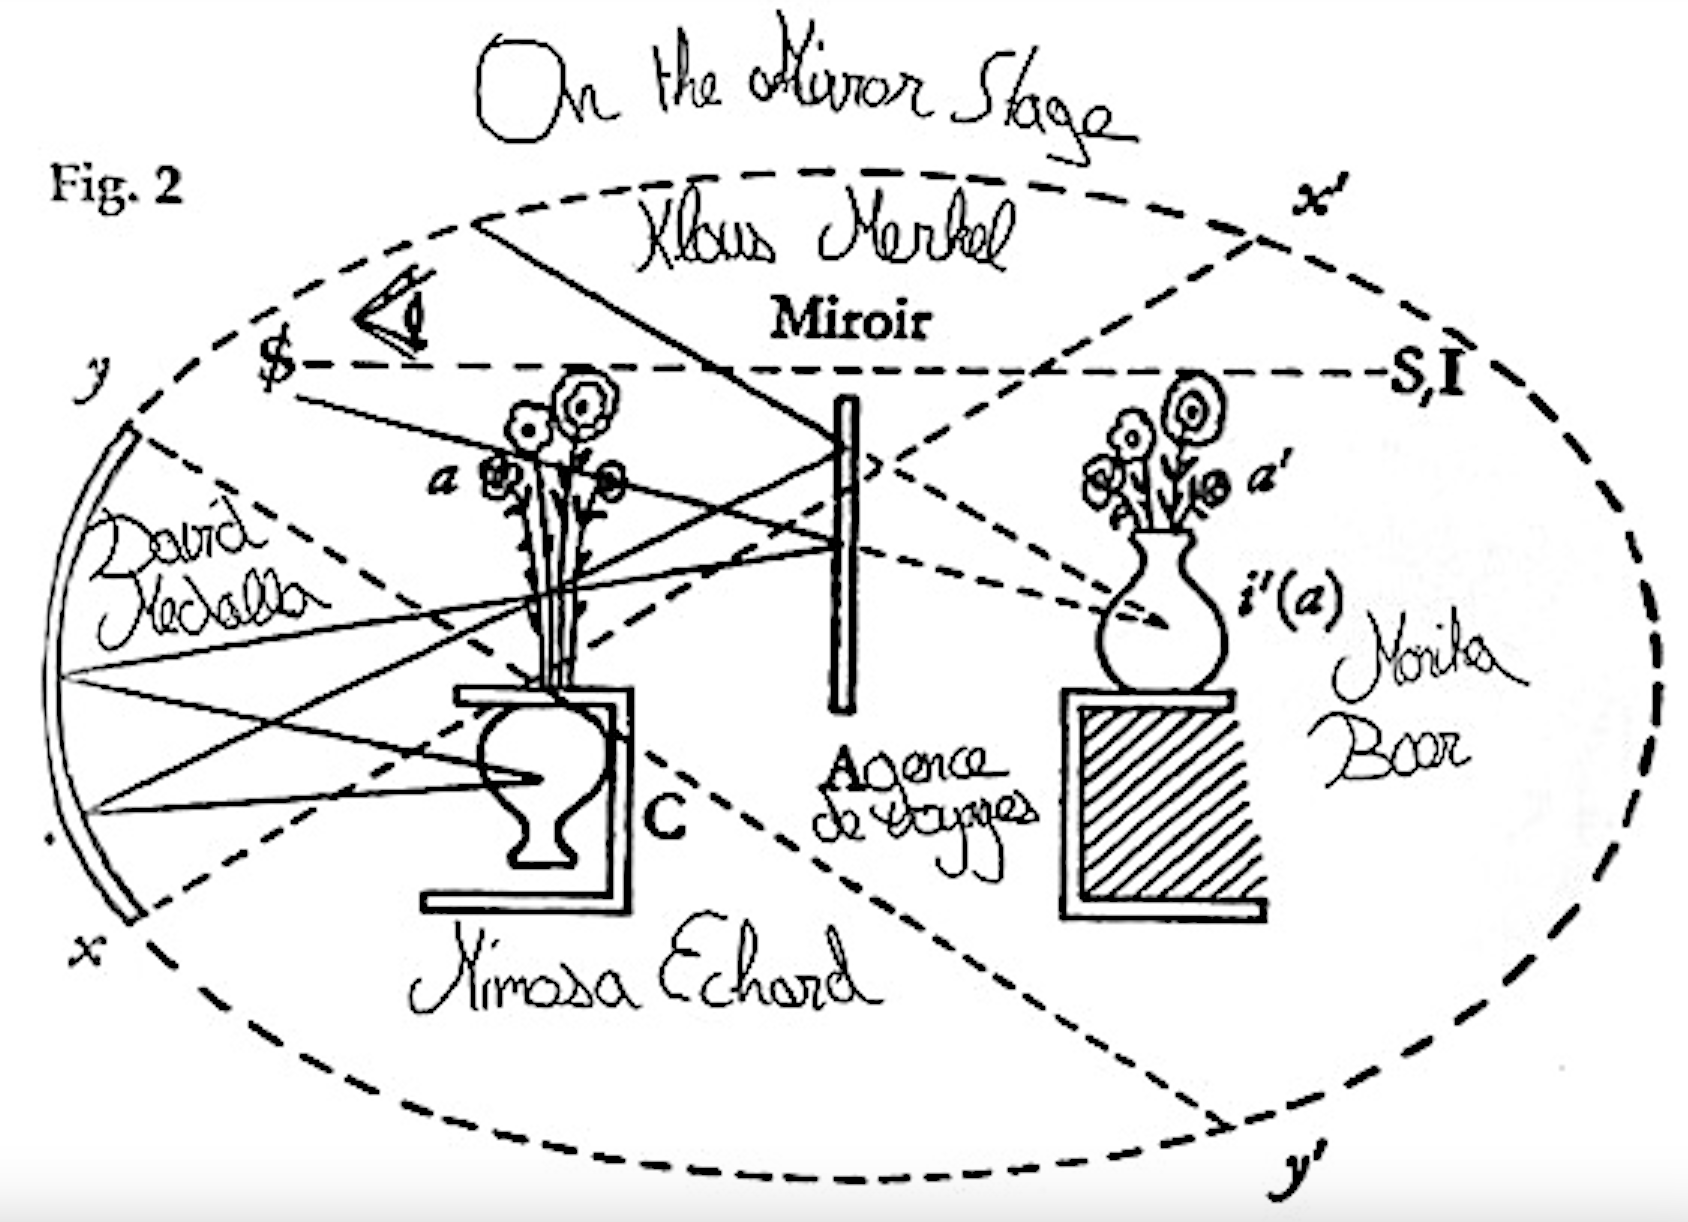 On the Mirror Stage
Fig. 2
x'
Klaus Merkel
Miroir
$
S,I
y
a
a'
David
Medalla
i'(a)
Monika
Baer
Agence
de voyages
C
x
Mimosa Echard
y'